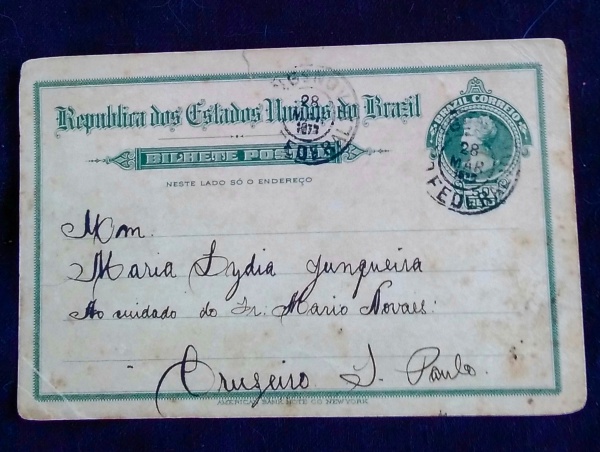 Republica dos Estados Unidos do Brazil
BILHETE POSTAL
NESTE LADO SÓ O ENDEREÇO
BRAZIL CORREIO
50
28
MAR
FEDERAL
28
FEDERAL
Mom.
Maria Lydia Junqueira
Ao cuidado do Sr. Mario Novaes:
Cruzeiro S. Paulo.
AMERICAN BANK NOTE CO. NEW YORK